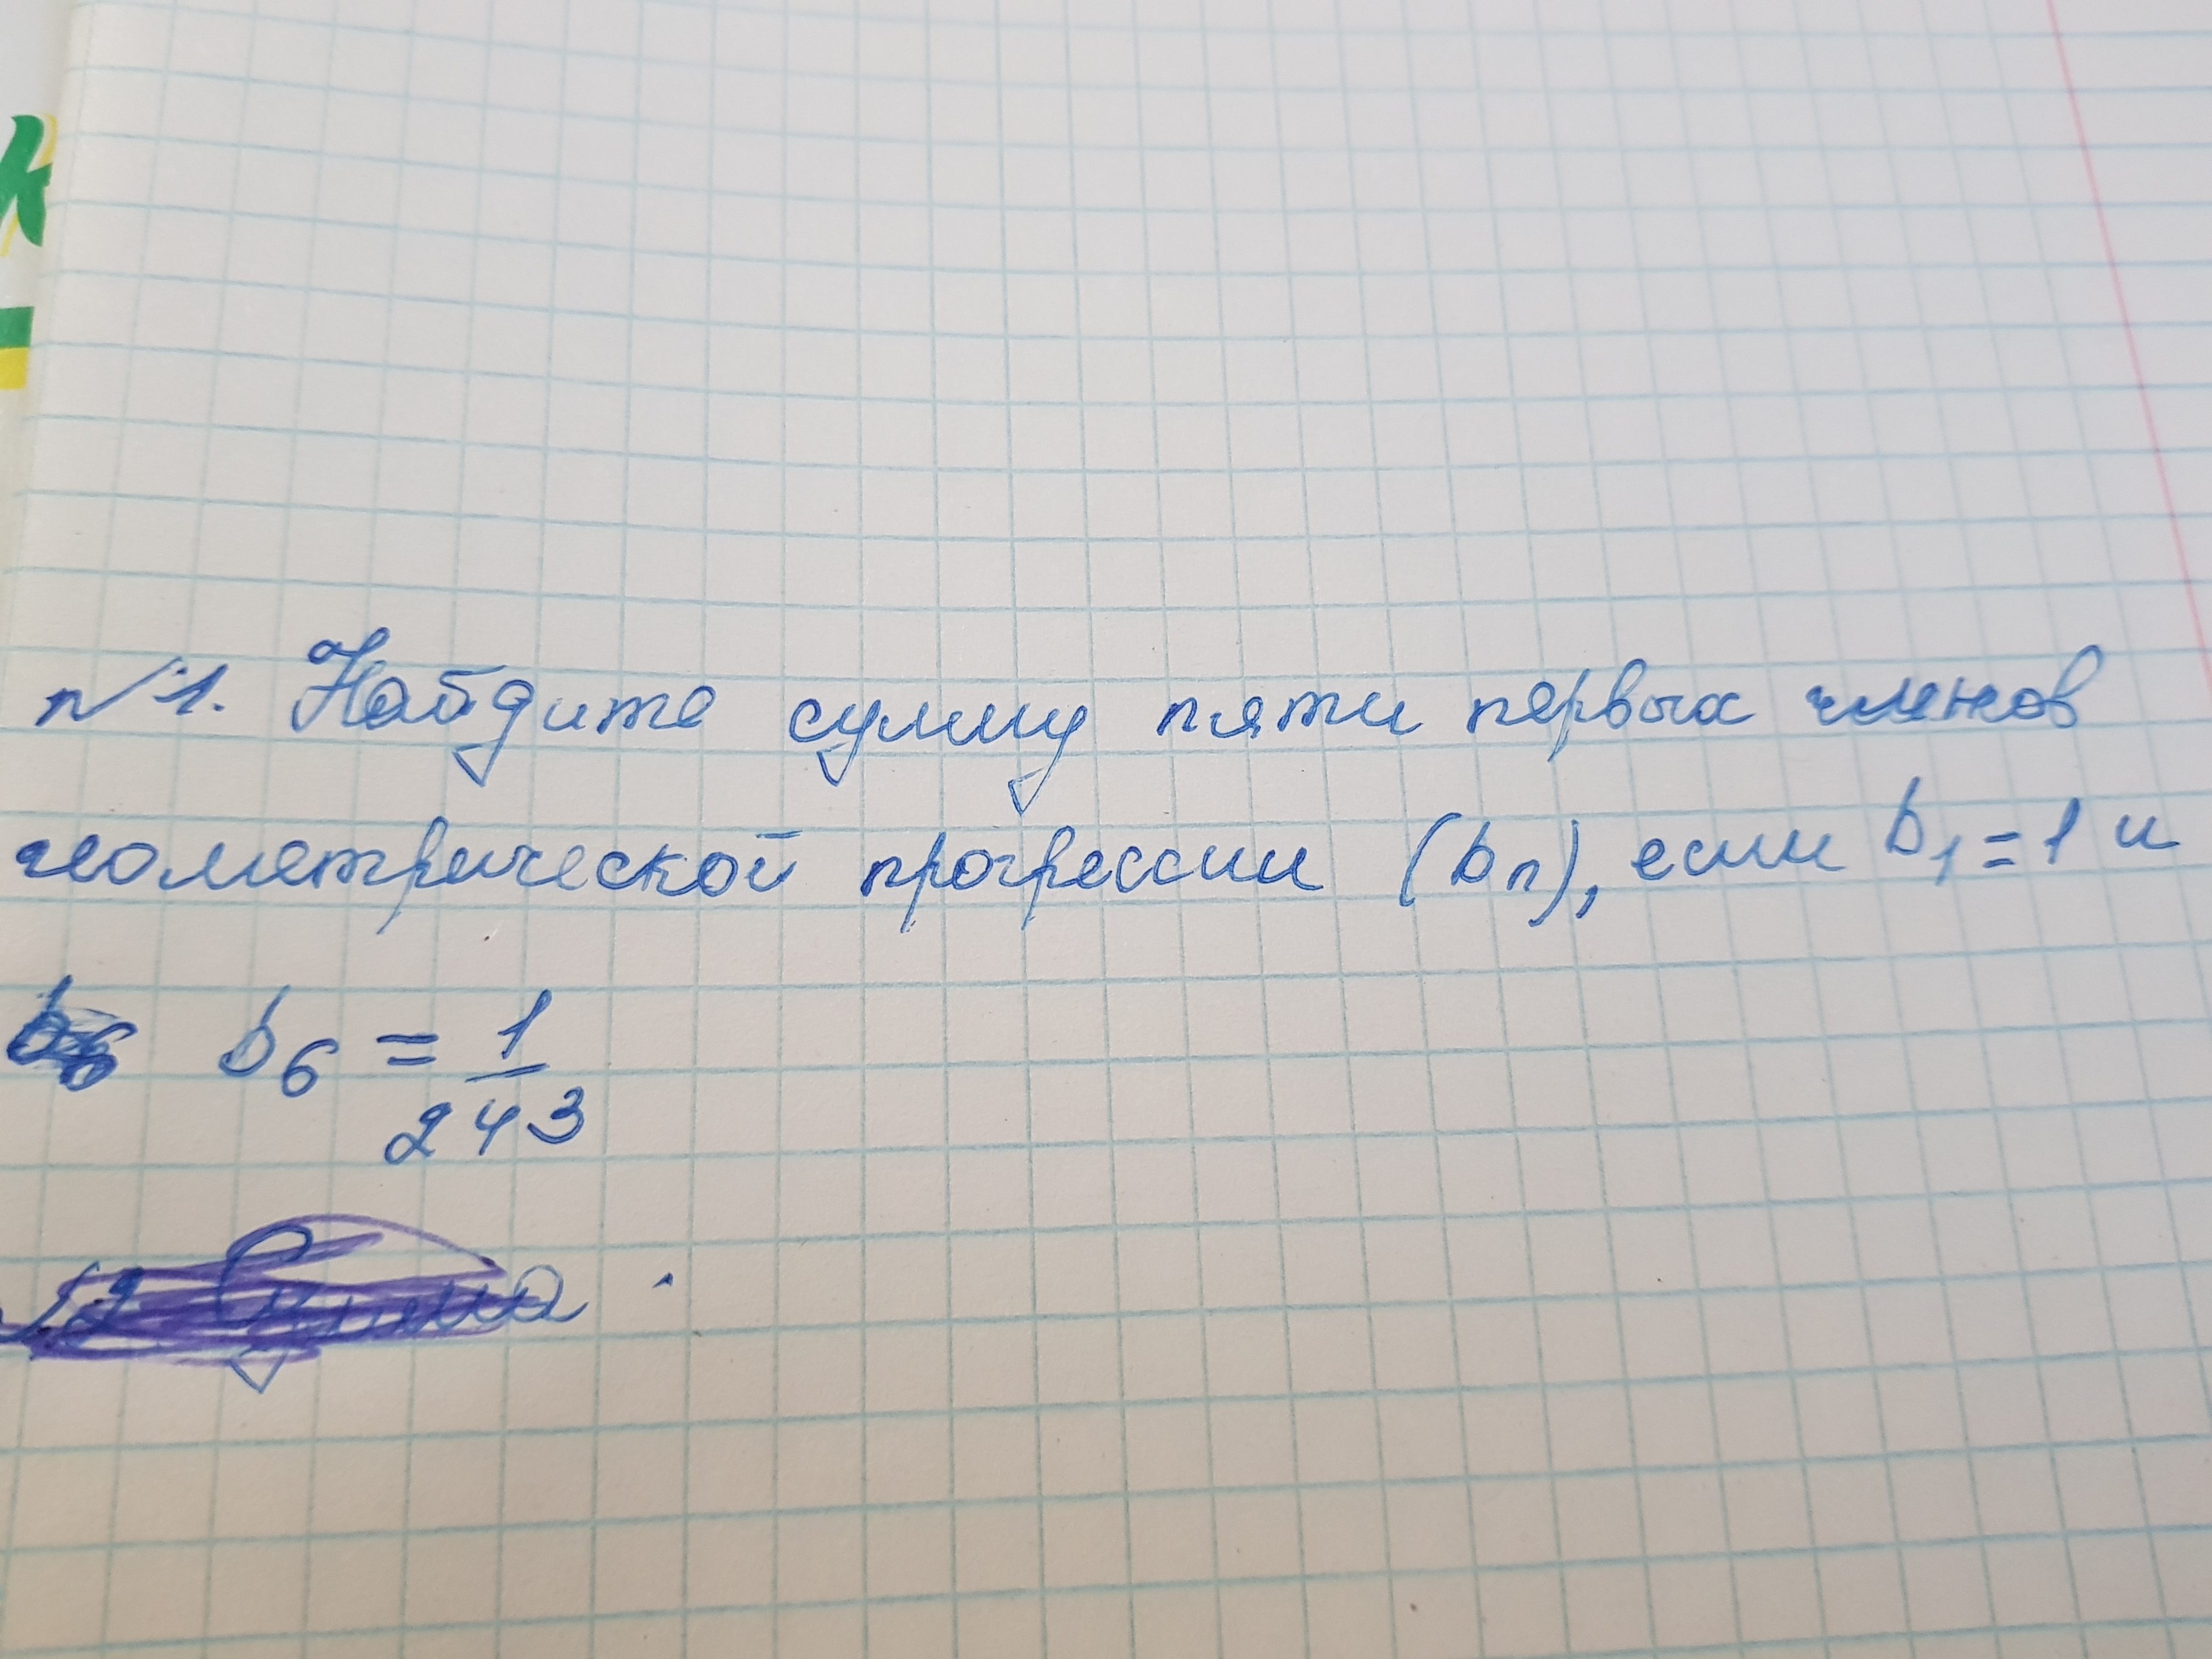 №1. Найдите сумму пяти первых членов
геометрической прогрессии (bn), если b1=1 и
b6 = 1/243